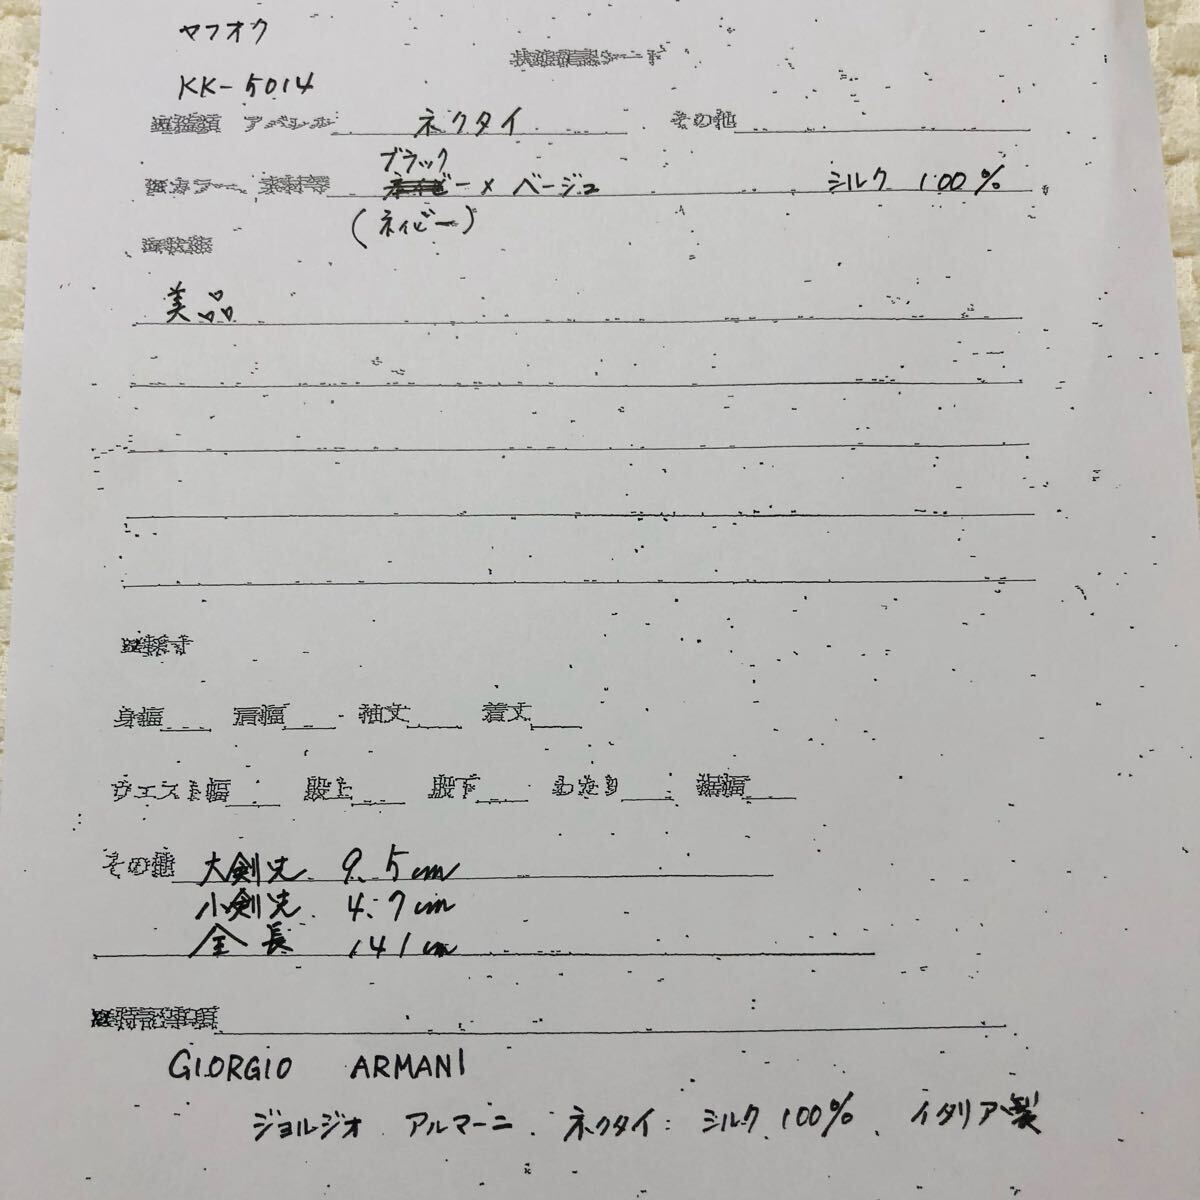 ヤフオク
KK-5014
アパレル ネクタイ その他
ブラック
カラー、素材等 × ベージュ シルク 100%
(ネイビー)
美品
身幅 肩幅 袖丈 着丈
ウエスト幅 股上 股下 わたり 裾幅
その他 大剣先 9.5cm
小剣先 4.7cm
全長 141cm
特記事項
GIORGIO ARMANI
ジョルジオ アルマーニ ネクタイ シルク 100% イタリア製